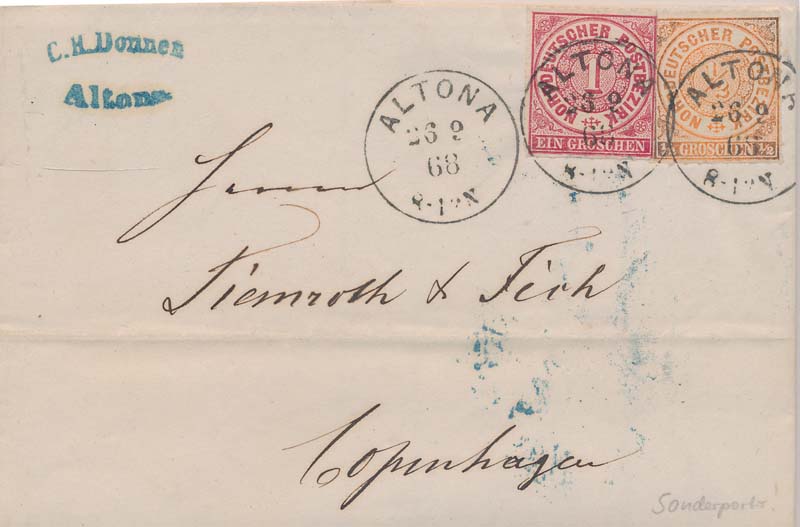 C. H. Donner
Altona
NORDDEUTSCHER POSTBEZIRK
1
EIN GROSCHEN
NORDDEUTSCHER POSTBEZIRK
1/2
GROSCHEN 1/2
ALTONA
26 9
68
8-12N
ALTONA
26 9
68
8-12N
ALTONA
26 9
68
8-12N
Herren
Siemroth & Fich
Copenhagen
Sonderporto